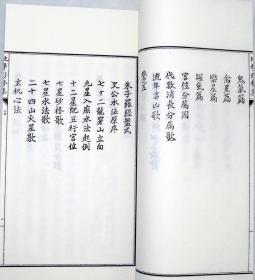 鬼氣篇
禽星篇
紫星篇
躔氣篇
宮位分屬圖
代數消長分屬歌
流年吉凶歌
卷五
朱子羅經盤式
里公水法原序
七十二龍穿山立向
九星入廟水法起例
十二星配五行宮位
七星水法歌
七星砂格歌
二十四山火星歌
玄机心法